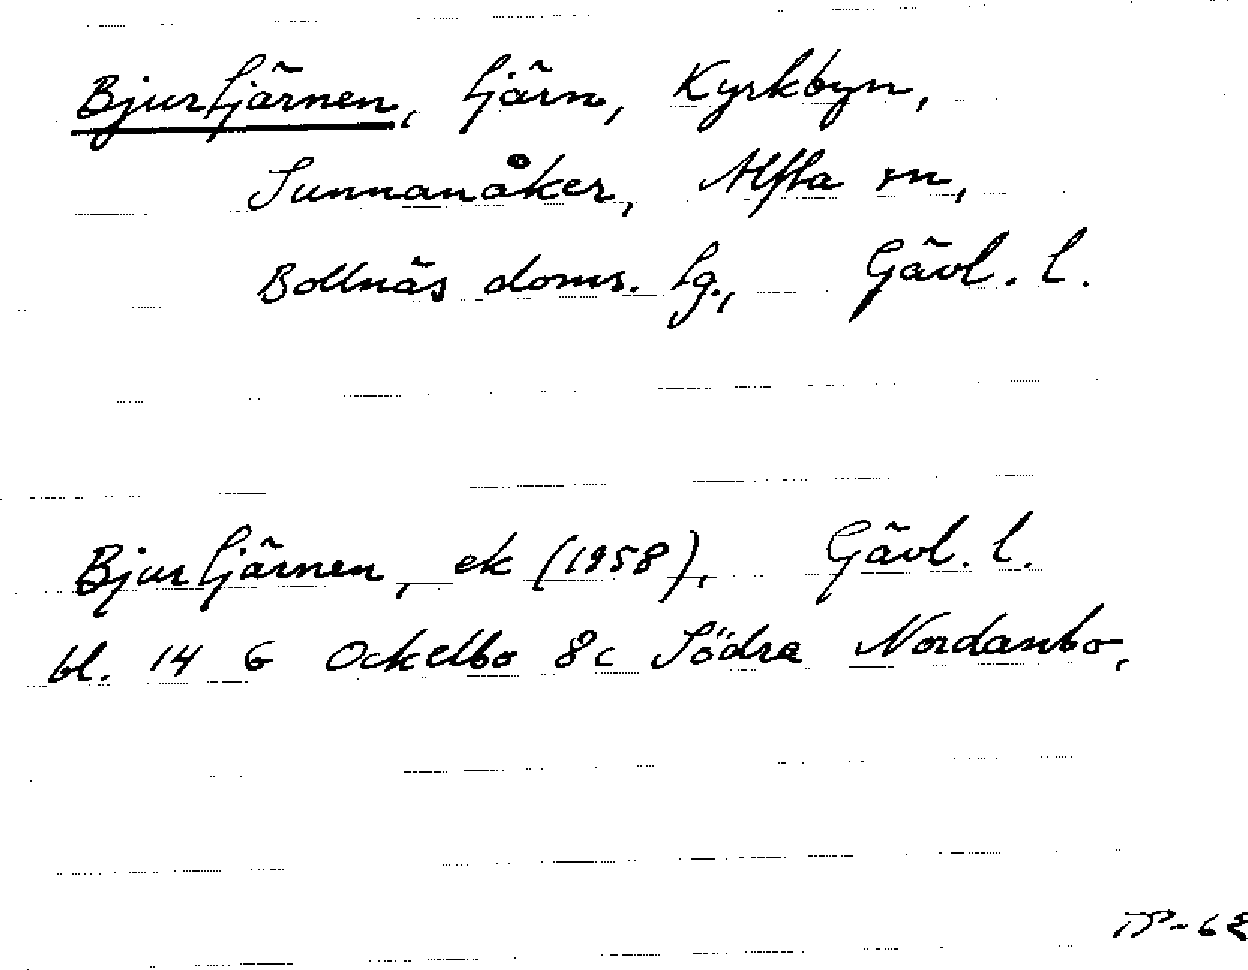 Bjurtjärnen, tjärn, Kyrkbyn,
Sunnanåker, Alfta sn,
Bollnäs doms. tg., Gävl. l.
Bjurtjärnen, ek (1958), Gävl. l.
bl. 14 G Ockelbo 8c Södra Nordanbo.